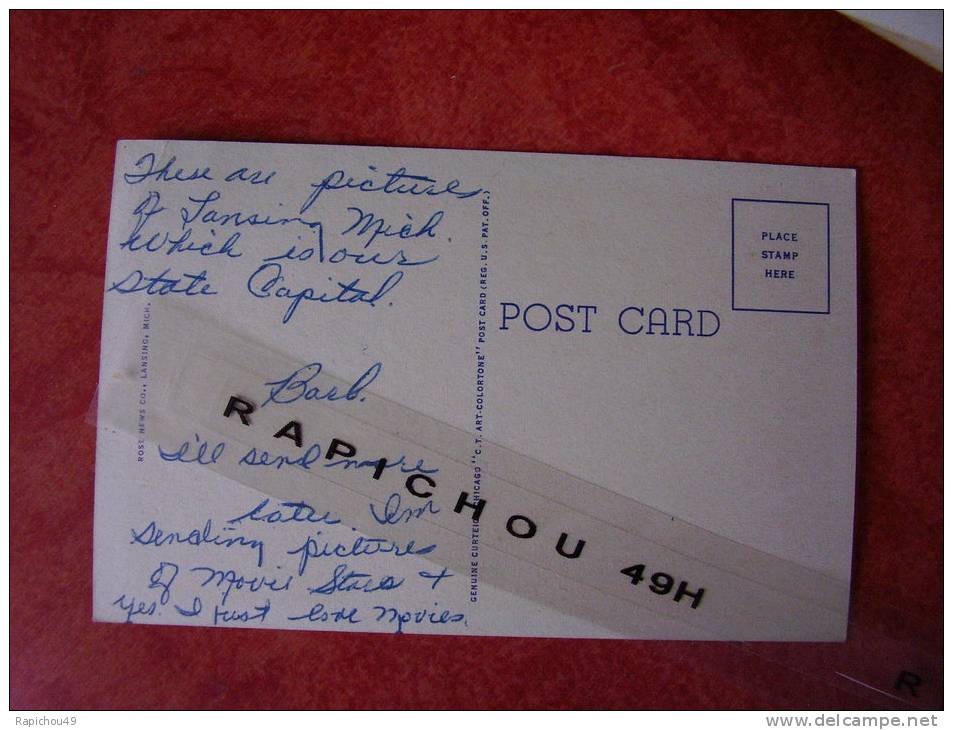 These are pictures
of Lansing Mich.
Which is our
State Capital.
Barb.
I'll send more
later. Im
sending pictures
of Movie Stars +
yes. I just love Movies.
ROST NEWS CO., LANSING, MICH.
GENUINE CURTEICH-CHICAGO "C.T. ART-COLORTONE" POST CARD (REG. U.S. PAT. OFF.)
POST CARD
PLACE
STAMP
HERE
RAPICHOU 49H
R
Rapichou49
www.delcampe.net